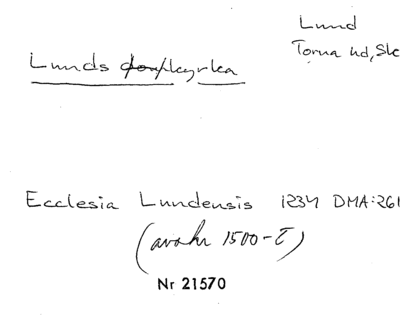 Lund
Torna hd, Sk
Lunds domkyrka
Ecclesia Lundensis 1234 DMA:261
(avskr 1500-t)
Nr 21570